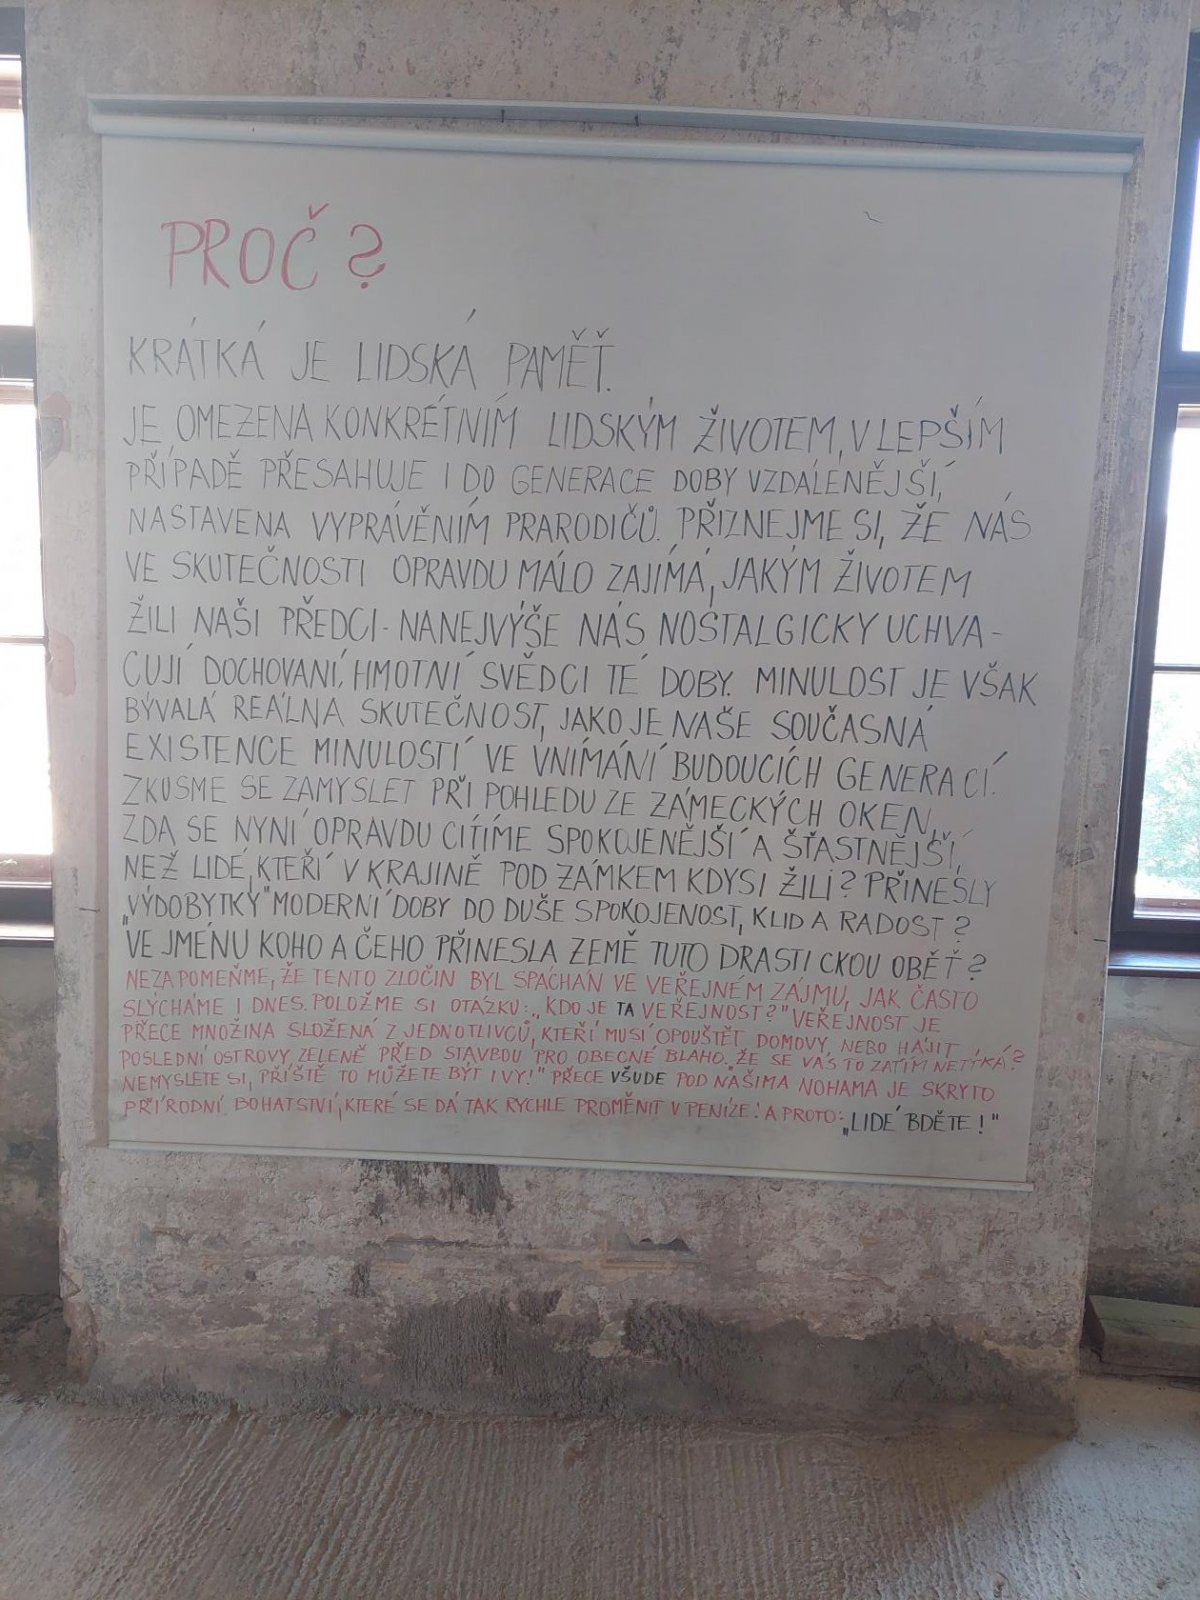 PROČ?
KRÁTKÁ JE LIDSKÁ PAMĚŤ.
JE OMEZENA KONKRÉTNÍM LIDSKÝM ŽIVOTEM, V LEPŠÍM
PŘÍPADĚ PŘESAHUJE I DO GENERACE DOBY VZDÁLENĚJŠÍ,
NASTAVENA VYPRÁVĚNÍM PRARODIČŮ. PŘIZNEJME SI, ŽE NÁS
VE SKUTEČNOSTI OPRAVDU MÁLO ZAJÍMÁ, JAKÝM ŽIVOTEM
ŽILI NAŠI PŘEDCI - NANEJVÝŠE NÁS NOSTALGICKY UCHVA-
CUJÍ DOCHOVANÍ, HMOTNÍ SVĚDCI TÉ DOBY. MINULOST JE VŠAK
BÝVALÁ REÁLNÁ SKUTEČNOST, JAKO JE NAŠE SOUČASNÁ
EXISTENCE MINULOSTÍ VE VNÍMÁNÍ BUDOUCÍCH GENERACÍ.
ZKUSME SE ZAMYSLET PŘI POHLEDU ZE ZÁMECKÝCH OKEN,
ZDA SE NYNÍ OPRAVDU CÍTÍME SPOKOJENĚJŠÍ A ŠŤASTNĚJŠÍ,
NEŽ LIDÉ, KTEŘÍ V KRAJINĚ POD ZÁMKEM KDYSI ŽILI? PŘINESLY
„VÝDOBYTKY" MODERNÍ DOBY DO DUŠE SPOKOJENOST, KLID A RADOST?
VE JMÉNU KOHO A ČEHO PŘINESLA ZEMĚ TUTO DRASTICKOU OBĚŤ?
NEZAPOMEŇME, ŽE TENTO ZLOČIN BYL SPÁCHÁN VE VEŘEJNÉM ZÁJMU, JAK ČASTO
SLÝCHÁME I DNES. POLOŽME SI OTÁZKU: „KDO JE TA VEŘEJNOST?" VEŘEJNOST JE
PŘECE MNOŽINA SLOŽENÁ Z JEDNOTLIVCŮ, KTEŘÍ MUSÍ OPOUŠTĚT DOMOVY, NEBO HÁJIT
POSLEDNÍ OSTROVY ZELENĚ PŘED STAVBOU PRO OBECNÉ BLAHO. „ŽE SE VÁS TO ZATÍM NETÝKÁ?
NEMYSLETE SI, PŘÍŠTĚ TO MŮŽETE BÝT I VY!" PŘECE VŠUDE POD NAŠIMA NOHAMA JE SKRYTO
PŘÍRODNÍ BOHATSTVÍ, KTERÉ SE DÁ TAK RYCHLE PROMĚNIT V PENÍZE! A PROTO: „LIDÉ BDĚTE!"